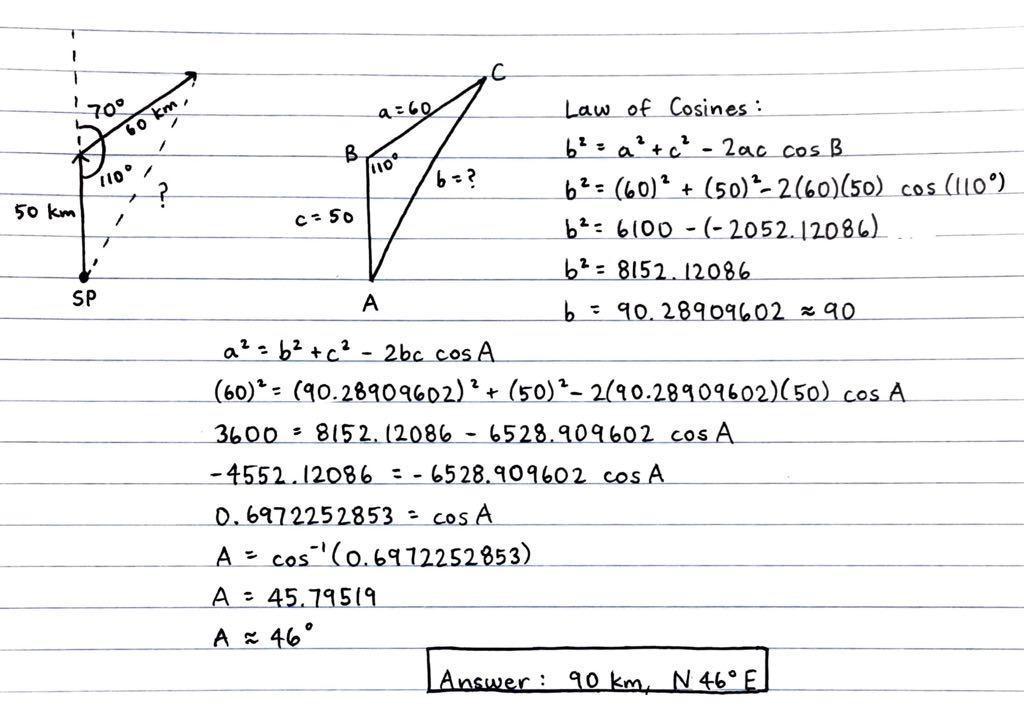 70°
60 km
110°
50 km
?
SP
C
a = 60
B
110°
b = ?
c = 50
A
Law of Cosines :
b² = a² + c² - 2ac cos B
b² = (60)² + (50)² - 2(60)(50) cos (110°)
b² = 6100 - (-2052.12086)
b² = 8152.12086
b = 90.28909602 ≈ 90
a² = b² + c² - 2bc cos A
(60)² = (90.28909602)² + (50)² - 2(90.28909602)(50) cos A
3600 = 8152.12086 - 6528.909602 cos A
-4552.12086 = -6528.909602 cos A
0.6972252853 = cos A
A = cos⁻¹(0.6972252853)
A = 45.79519
A ≈ 46°
Answer : 90 km, N 46° E